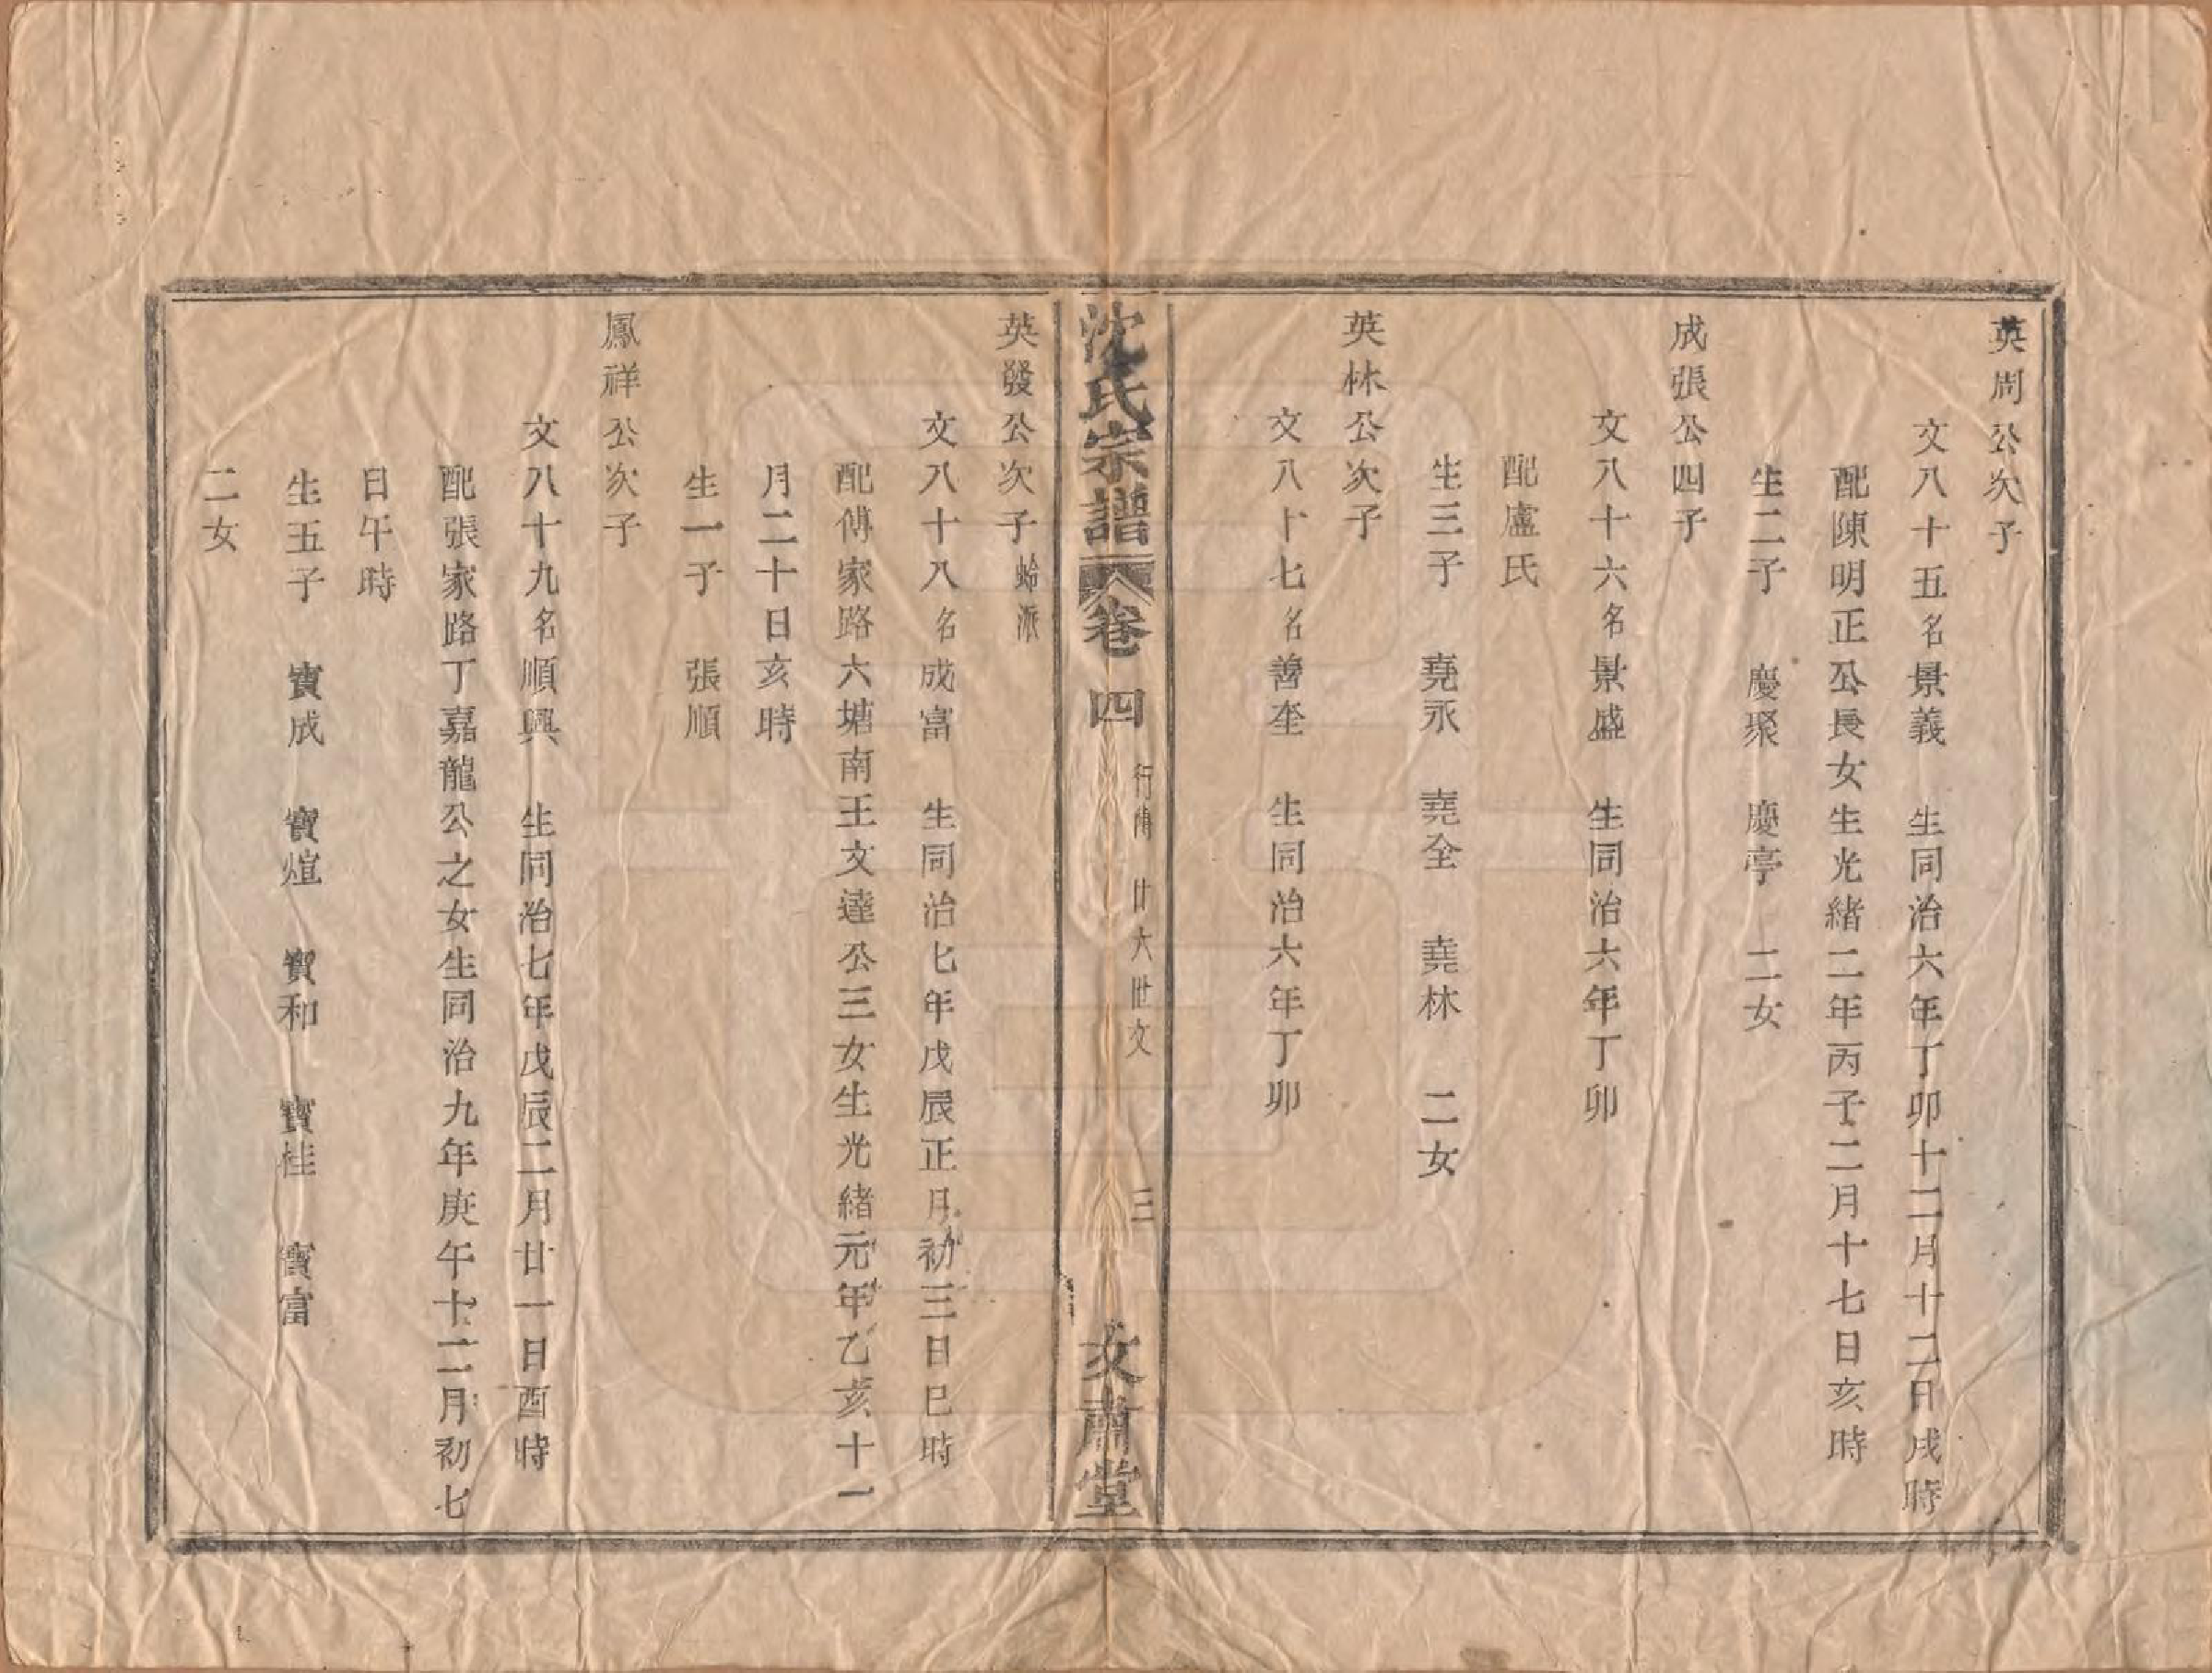 英周公次子
文八十五名景義　生同治六年丁卯十二月十二日戌時
配陳明正公長女生光緒二年丙子二月十七日亥時
生二子　慶聚　慶亭　二女
成張公四子
文八十六名景盛　生同治六年丁卯
配盧氏
生三子　堯永　堯全　堯林　二女
英林公次子
文八十七名善奎　生同治六年丁卯
沈氏宗譜　卷四　行傳　廿六世文　三　文肅堂
英發公次子　派
文八十八名成富　生同治七年戊辰正月初三日巳時
配傅家路六塘南王文達公三女生光緒元年乙亥十一
月二十日亥時
生一子　張順
鳳祥公次子
文八十九名順興　生同治七年戊辰二月廿一日酉時
配張家路丁嘉龍公之女生同治九年庚午十二月初七
日午時
生五子　寶成　寶煊　寶和　寶桂　寶富
二女